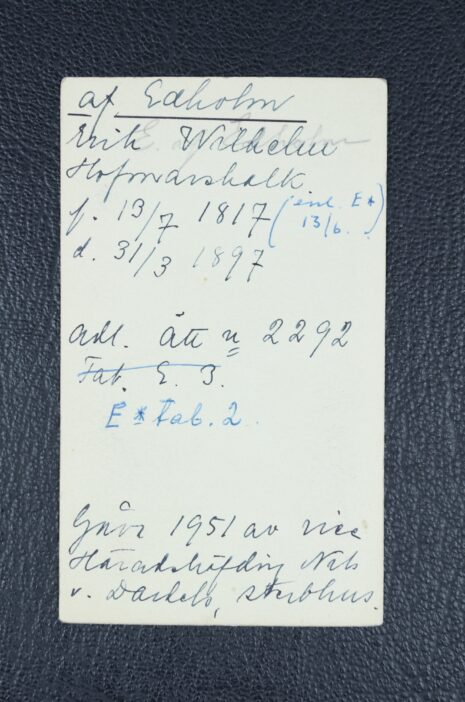 af Edholm
Erik Wilhelm
Hofmarshalk
f. 13/7 1817 (enl. E*
13/6.)
d. 31/3 1897
adl. ätt n 2292
Tab. E. 3.
E* Tab. 2.
Gåva 1951 av vice
Häradshöfding Nils
v. Dardel, sterbhus.